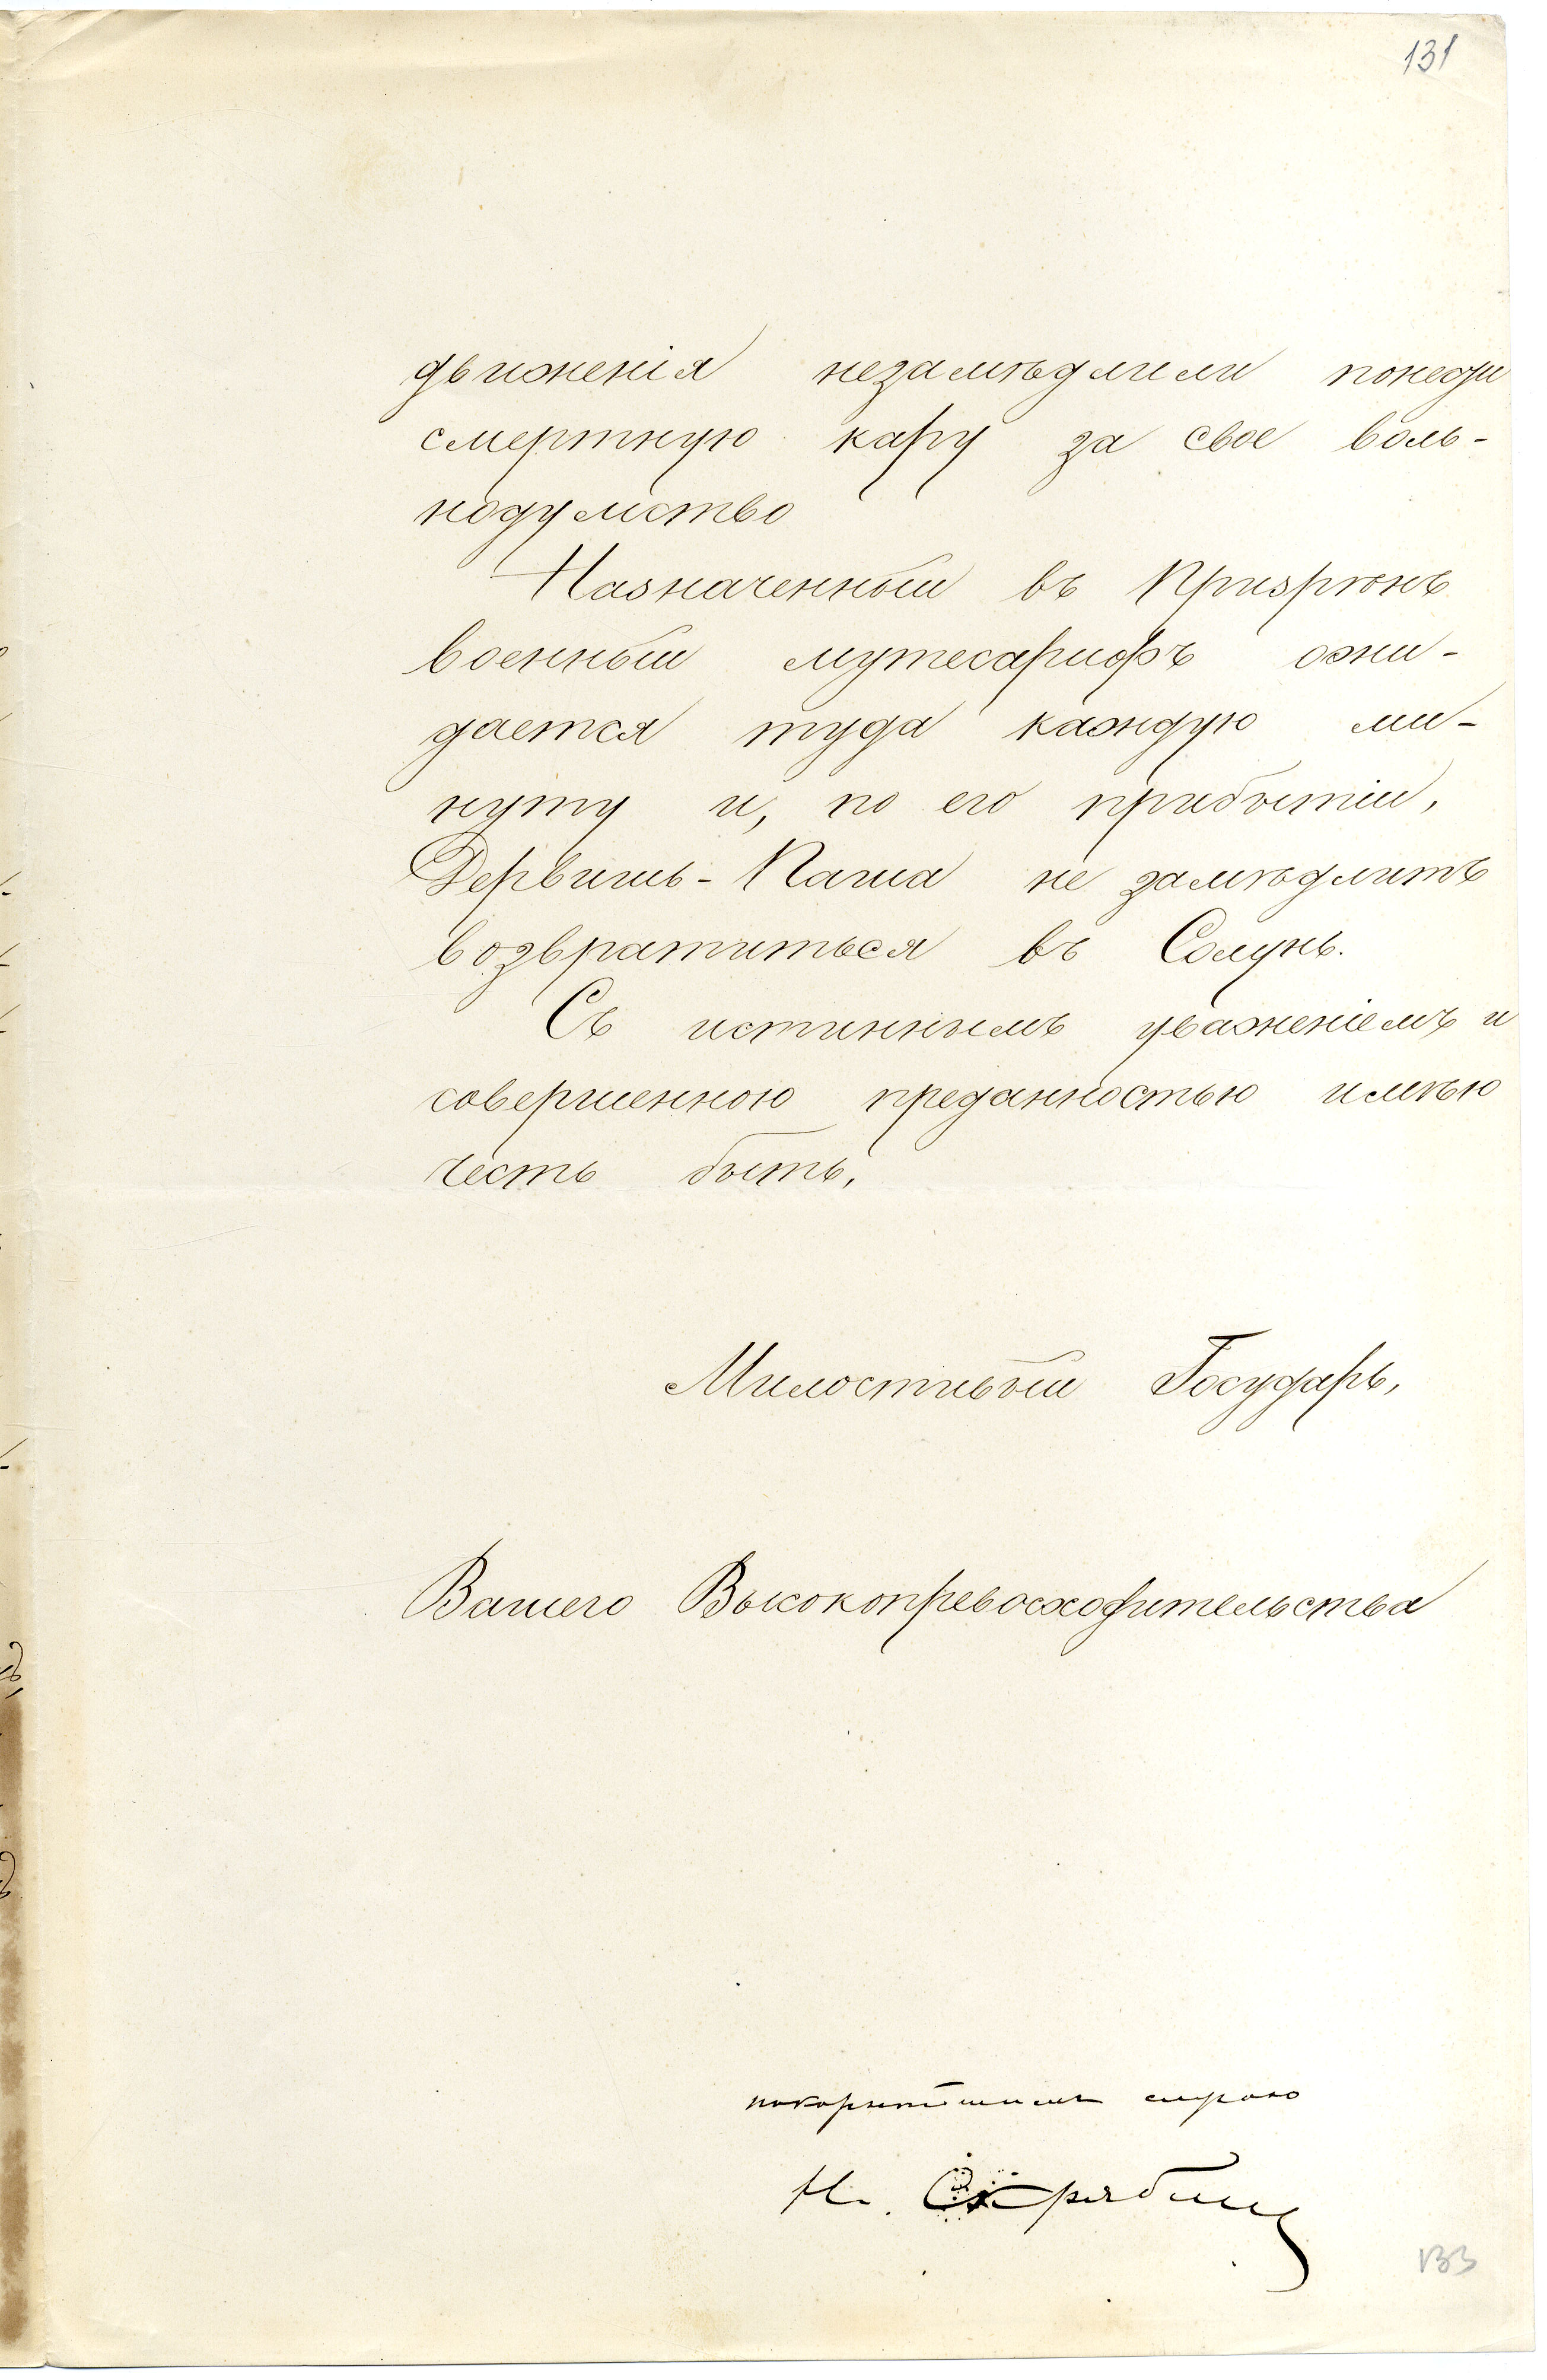 131
движенія незамѣдлили понести
смертную кару за свое воль-
нодумство
Назначенный въ Призрѣнъ
военный мутесарифъ ожи-
дается туда каждую ми-
нуту и, по его прибытіи,
Дервишь-Паша не замѣдлитъ
возвратиться въ Солунь.
Съ истиннымъ уваженіемъ и
совершенною преданностью имѣю
честь быть,
Милостивый Государь,
Вашего Высокопревосходительства
покорнѣйшимъ слугою
Н. Скрябин
133